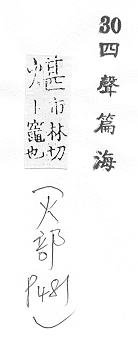 30四聲篇海
煁市林切
竈也
(火部 P481)